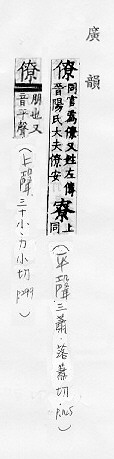 廣韻
僚同官為僚又姓左傳晉陽氏大夫僚安寮上同(平聲三蕭.落蕭切.P.145)
僚朋也又音平聲(上聲三十小.力小切P299)